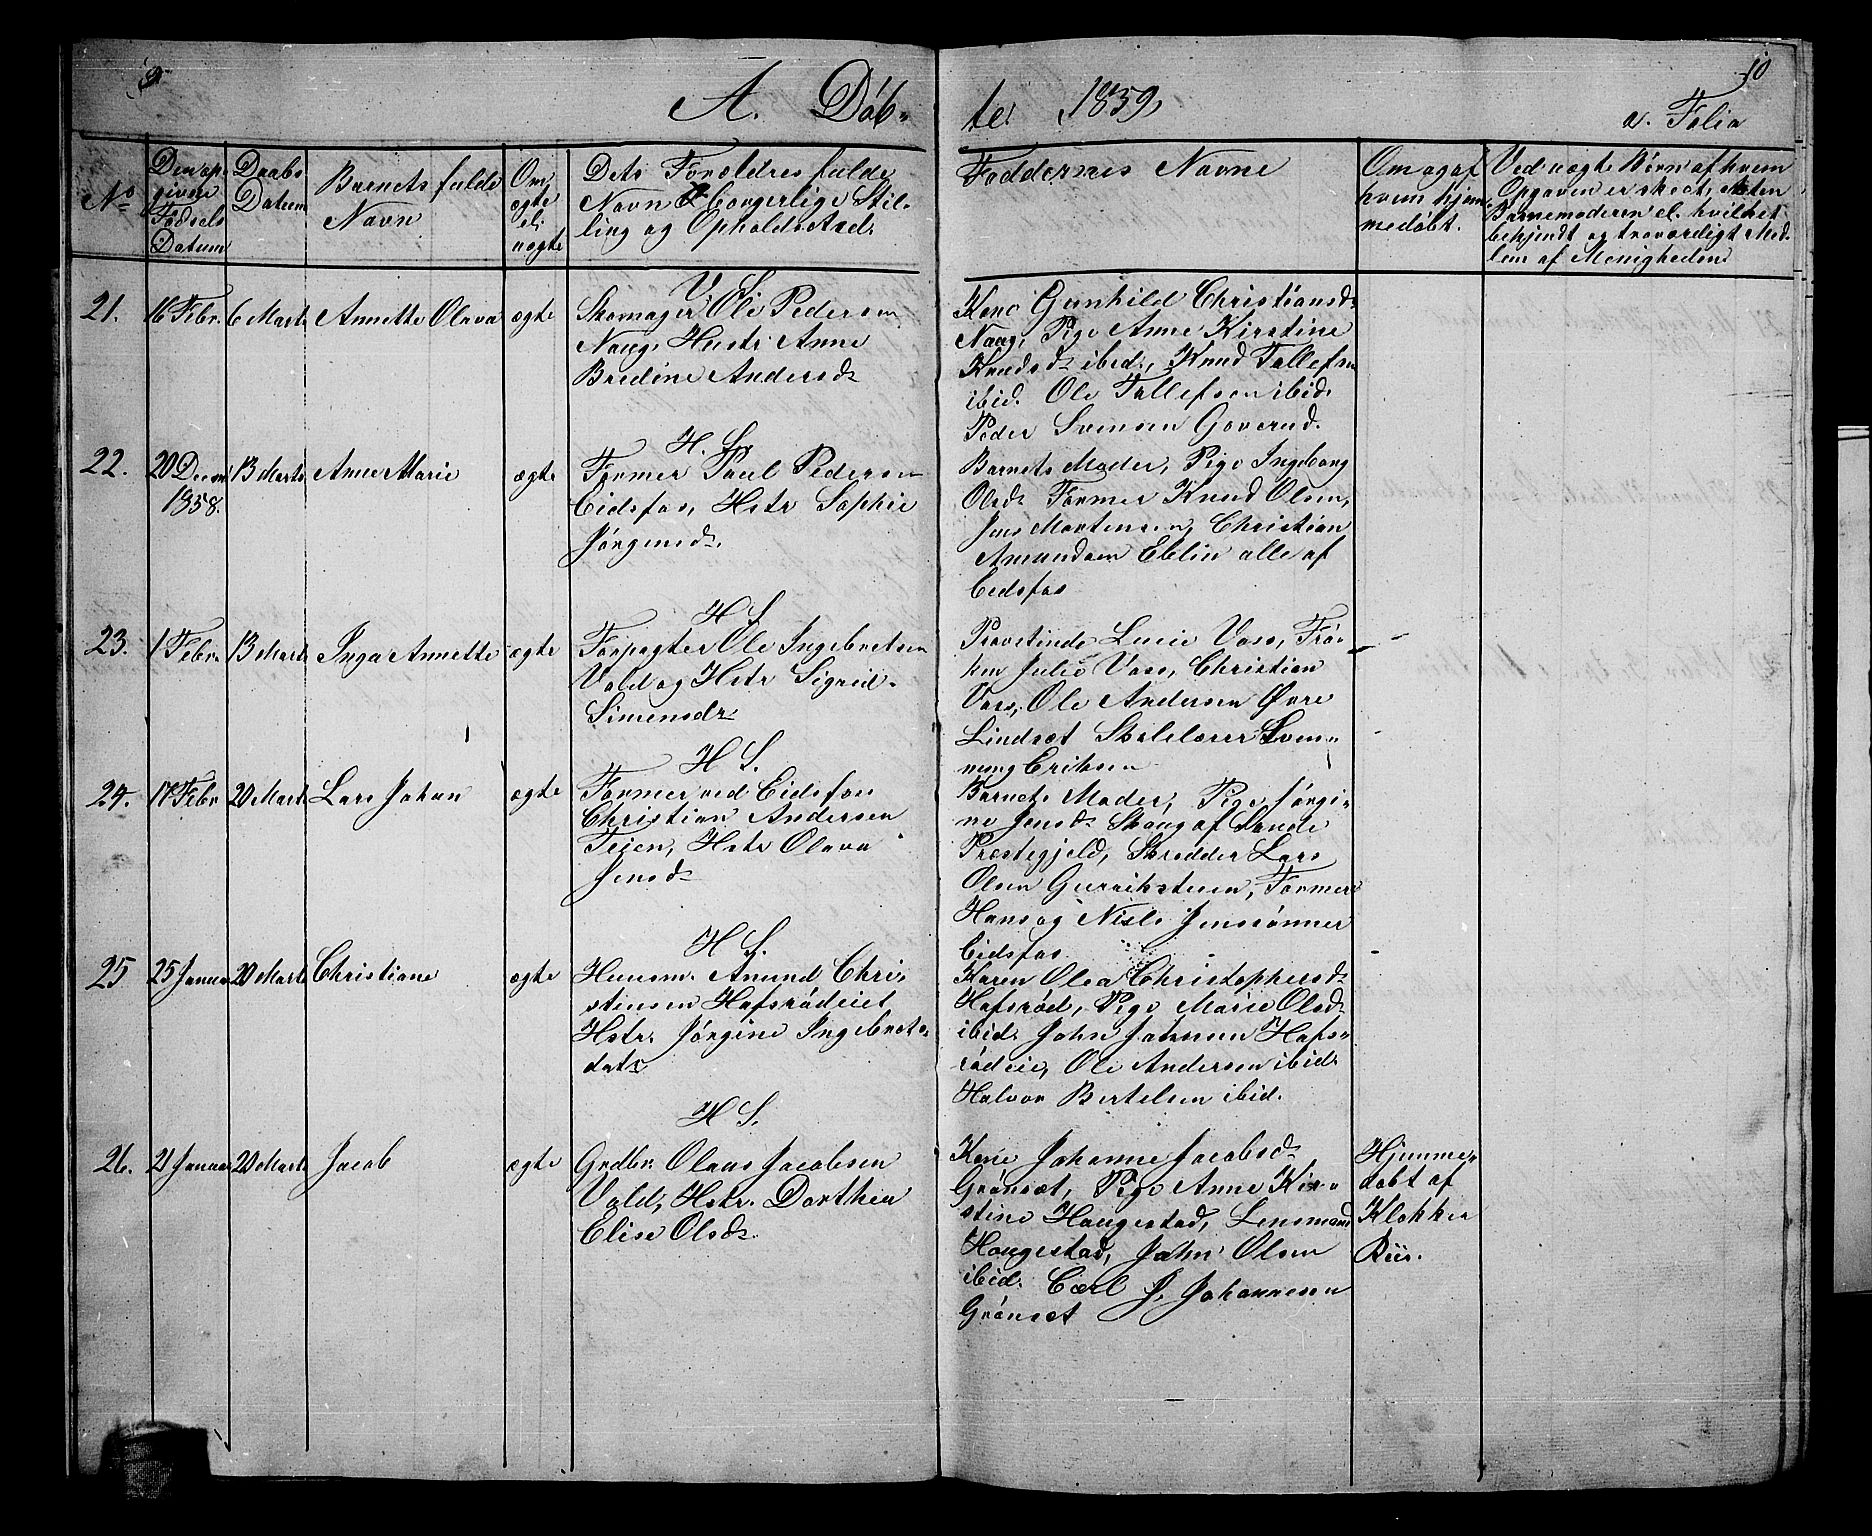 9
A. Döb-
te. 1859,
10
a. Folio
No
Den op-
givne
Födsels
Datum
Daabs
Datum
Barnets fulde
Navn
Om
ægte
el.
uægte
Dets Forældres fulde
Navn & borgerlige Stil-
ling og Opholdssted.
Faddernes Navne
Om og af
hvem hjem-
medöbt.
Ved uægte Börn af hvem
Opgaven er skeet, Msten
Barnemoderen el. hvilket
bekjendt og troværdigt Med-
lem af Menigheden
V. S.
21.
16 Febr.
6 Marts
Annette Olava
ægte
Skomager Ole Pedersen
Naug, Hustr. Anne
Bredine Andersd.
Kone Gunhild Christiansd.
Naug, Pige Anne Kirstine
Knudsd. ibid., Knud Tollefsen
ibid. Ole Tollefsen ibid.
Peder Svensen Goverud.
H. S.
22.
20 Decem
1858.
13 Marts
Anne Marie
ægte
Former Paul Pedersen
Eidsfos, Hstr. Sophie
Jörgensd.
Barnets Moder, Pige Ingeborg
Olsd. Former Knud Olsen,
Jens Mortensen, Christian
Amundsen Eblin alle af
Eidsfos
H. S.
23.
1 Febr.
13 Marts
Inga Annette
ægte
Forpagter Ole Ingebretsen
Vold og Hstr. Sigrid
Simensdr.
Provstinde Lucie Vos, Frö-
ken Julie Vos, Christian
Vos, Ole Andersen Övre
Lindsæt Skolelærer Sven-
nung Eriksen
H. S.
24.
17 Febr
20 Marts
Lars Johan
ægte
Former ved Eidsfos
Christian Andersen
Teien, Hstr. Olava
Jensd.
Barnets Moder, Pige Jörgi-
ne Jensd. Skoug af Sande
Præstegjeld, Skredder Lars
Olsen Gurrikstuen, Former
Hans og Niels Jenssönner
Eidsfos
H. S.
25
25 Januar
20 Marts
Christiane
ægte
Huusm. Amund Chri-
stensen Hafsrödeiet
Hstr. Jörgine Ingebrets-
datr.
Karen Olea Christophersd.
Hafsröd, Pige Marie Olsd.
ibid. John Johnsen Hafs-
rödeie, Ole Andersen ibid.
Halvor Bertelsen ibid.
H. S.
26.
21 Januar
20 Marts
Jacob
ægte
Grdbr. Olaus Jacobsen
Vold, Hstr. Dorthea
Elise Olsd.
Kone Johanne Jacobsd.
Grönset, Pige Anne Kir-
stine Haugestad, Lensmand
Haugestad, John Olsen
ibid. Carl J. Johannesen
Grönset
Hjemme-
döbt af
Klokker
Riis.